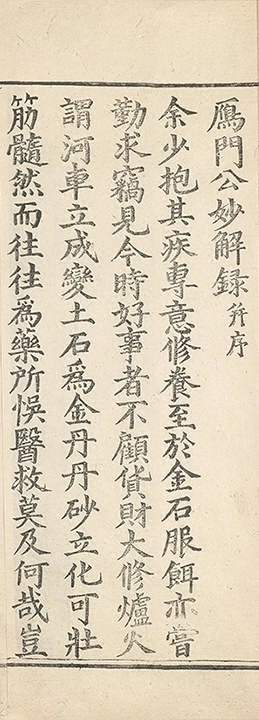 鴈門公妙解録并序
余少抱其疾專意修養至於金石服餌亦嘗
勤求竊見今時好事者不顧貨財大修爐火
謂河車立成變土石爲金丹丹砂立化可壯
筋髓然而往往爲藥所悞醫救莫及何哉豈